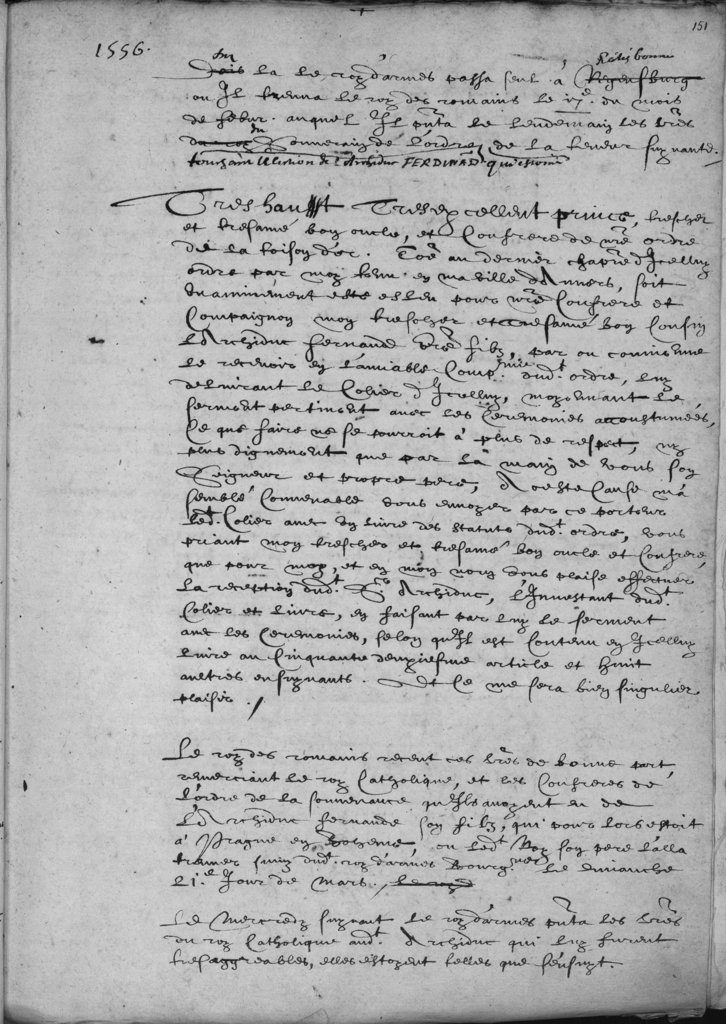 151
1556.
De
Ratisbonne
la le roy d'armes passa seul à Regensburg
ou Il trouva le roy des romains le vj.e du mois
de febvr. auquel Il pnta le lendemain les lres
du Souverain de l'ordre, de la teneur suyvante.
touchant l'election de l'Archiduc FERDINAND qui s'ensuit
Treshault Tresexcellent prince, trescher
et tresamé bon oncle, et Confrere de nre ordre
de la toison d'or. Côe au dernier chaptre d'Icelluy
ordre par moy tenu en ma ville d'Anvers, soit
unanimement esté esleu pour nre Confrere et
Compaignon mon trescher et tresamé bon Cousin
l'Archiduc fernande vre filz, par ou convienne
le recevoir en l'amiable Compnie dudt ordre, luy
delivrant le Colier d'Icelluy, moyennant le
serment pertinent avec les Ceremonies accoustumées,
Ce que faire ne se pourroit à plus de respect, ny
plus dignement que par la main de vous son
Seigneur et propre pere, A ceste Cause m'a
semblé Convenable vous envoyer par ce porteur
ledt Colier avec un livre des statuts dudt ordre, vous
priant mon trescher et tresamé bon oncle et Confrere,
que pour moy, et en mon nom vous plaise effectuer
la reception dudt Sr Archiduc, l'Investant dudt
Colier et livre, en faisant par luy le serment
avec les Ceremonies, selon qu'Il est Contenu en Icelluy
livre au Cinquante deuxiesme article et huict
aultres ensuyvants. Et Ce me sera bien singulier
plaisir. /
Le roy des romains receut ces lres de bonne part,
remerciant le roy Catholique, et les Confreres de
l'ordre de la souvenance qu'Ilz avoyent eu de
l'Archiduc fernande son filz, qui pour lors estoit
à Prague en Boheme, ou ledt Roy son pere l'alla
trouver suivy dudt roy d'armes Bourgne le dimanche
21.e Jour de Mars.
Le Mercredy suyvant le roy d'armes pnta les lres
du roy Catholique audt Archiduc qui luy furent
tresaggreables, elles estoyent telles que s'ensuyt.